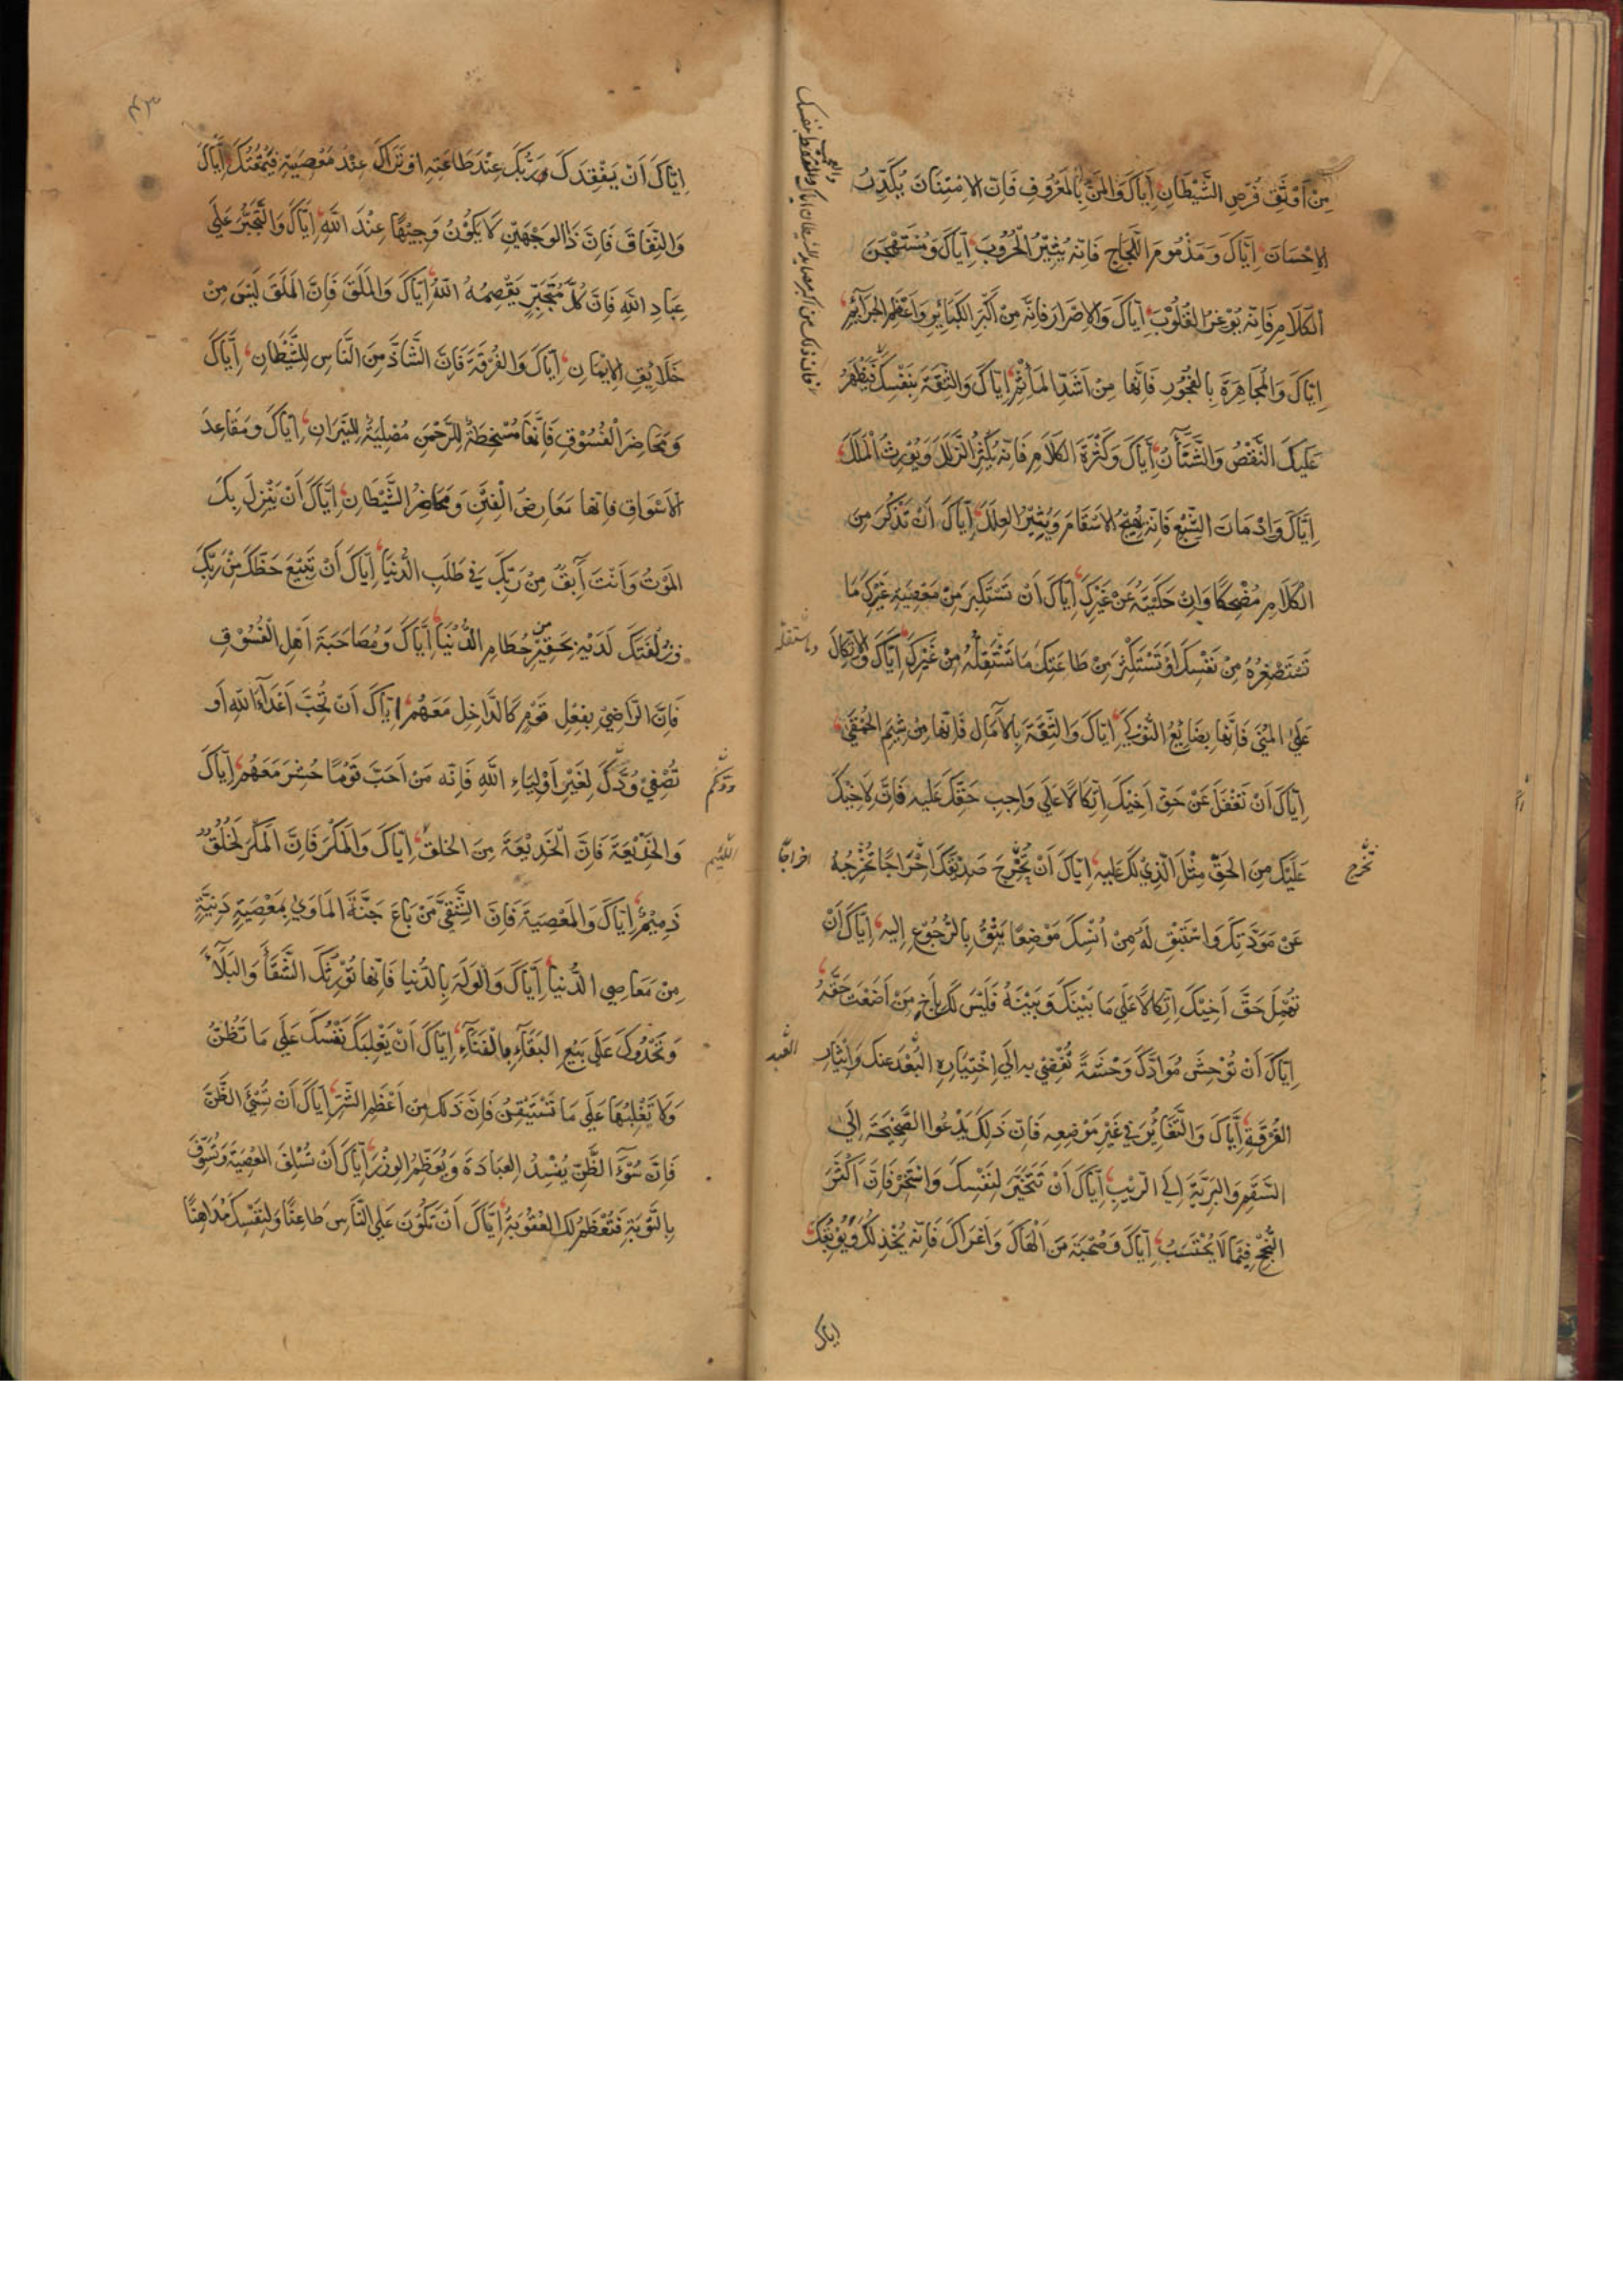 مِنْ اَوْثَقِ فُرَصِ الشَّيْطَانِ اِيَّاكَ وَالمَنَّ بِالمَعْرُوفِ فَاِنَّ الاِمْتِنَانَ يُكَدِّرُ
الاِحْسَانَ اِيَّاكَ وَمَذْمُومَ اللَّجَاجِ فَاِنَّهُ يُثِيْرُ الحُرُوبَ اِيَّاكَ وَمُسْتَهْجَنَ
الكَلَامِ فَاِنَّهُ يُوْغِرُ القُلُوْبَ اِيَّاكَ وَالاِصْرَارَ فَاِنَّهُ مِنْ اَكْبَرِ الكَبَائِرِ وَاَعْظَمِ الجَرَائِمِ
اِيَّاكَ وَالمُجَاهِرَةَ بِالفُجُوْرِ فَاِنَّهَا مِنْ اَشَدِّ المَأثِمِ اِيَّاكَ وَالثِّقَةَ بِنَفْسِكَ فَيَظْهَرُ
عَلَيْكَ النَّقْصُ وَالشَّنَآنُ اِيَّاكَ وَكَثْرَةَ الكَلَامِ فَاِنَّهُ يُكْثِرُ الزَّلَلَ وَيُوْرِثُ المَلَلَ
اِيَّاكَ وَاِدْمَانَ الشِّبَعِ فَاِنَّهُ يُهَيِّجُ الاَسْقَامَ وَيُثِيْرُ العِلَلَ اِيَّاكَ اَنْ تَذْكُرَ مِنَ
الكَلَامِ مُضْحِكًا وَاِنْ حَكَيْتَهُ عَنْ غَيْرِكَ اِيَّاكَ اَنْ تَسْتَكْبِرَ مِنْ مَعْصِيَةِ غَيْرِكَ مَا
تَسْتَصْغِرُهُ مِنْ نَفْسِكَ اَوْ تَسْتَكْثِرَ مِنْ طَاعَتِكَ مَا تَسْتَقِلُّهُ مِنْ غَيْرِكَ اِيَّاكَ وَالاِتِّكَالَ
عَلَى المُنَى فَاِنَّهَا بِضَايِعُ النَّوْكَى اِيَّاكَ وَالثِّقَةَ بِالآمَالِ فَاِنَّهَا مِنْ شِيَمِ الحَمْقَى
اِيَّاكَ اَنْ تَغْفَلَ عَنْ حَقِّ اَخِيْكَ اِتِّكَالًا عَلَى وَاجِبِ حَقِّكَ عَلَيهِ فَاِنَّ لِاَخِيْكَ
عَلَيْكَ مِنَ الحَقِّ مِثْلَ الَّذِيْ لَكَ عَلَيهِ اِيَّاكَ اَنْ تُخْرِجَ صَدِيْقَكَ اِخْرَاجًا تُخْرِجُهُ
عَنْ مَوَدَّتِكَ وَاسْتَبْقِ لَهُ مِنْ اُنْسِكَ مَوْضِعًا يَثِقُ بِالرُّجُوْعِ اِلَيهِ اِيَّاكَ اَنْ
تُهْمِلَ حَقَّ اَخِيْكَ اِتِّكَالًا عَلَى مَا بَيْنَكَ وَبَيْنَهُ فَلَيْسَ لَكَ بِاَخٍ مَنْ اَضَعْتَ حَقَّهُ
اِيَّاكَ اَنْ تُوْحِشَ مُوَادَّكَ وَحْشَةً تُفْضِيْ بِهِ اِلَى اِخْتِيَارِهِ البُعْدَ عَنْكَ وَاِيْثَارِ
الفُرْقَةِ اِيَّاكَ وَالتَّغَايُرَ فِيْ غَيْرِ مَوْضِعِهِ فَاِنَّ ذَلِكَ يَدْعُوا الصَّحِيْحَةَ اِلَى
السَّقَمِ وَالبَرِيَّةَ اِلَى الرَّيْبِ اِيَّاكَ اَنْ تَتَخَيَّرَ لِنَفْسِكَ وَاسْتَخِرْ فَاِنَّ اَكْثَرَ
النُّجْحِ فِيْمَا لَا يُحْتَسَبُ اِيَّاكَ وَصُحْبَةَ مَنْ اَلْهَاكَ وَاَغْرَاكَ فَاِنَّهُ يُخْذِلُكَ وَيُوْبِقُكَ
اياك
تخرج
اخراجًا
البعد
٤٣
اِيَّاكَ اَنْ يَفْقِدَكَ رَبُّكَ عِنْدَ طَاعَتِهِ اَوْ يَرَاكَ عِنْدَ مَعْصِيَةٍ فَيَمْقُتَكَ اِيَّاكَ
وَالنِّفَاقَ فَاِنَّ ذَا الوَجْهَيْنِ لَا يَكُوْنُ وَجِيْهًا عِنْدَ اللّٰهِ اِيَّاكَ وَالتَّجَبُّرَ عَلَى
عِبَادِ اللّٰهِ فَاِنَّ كُلَّ مُتَجَبِّرٍ يَقْصِمُهُ اللّٰهُ اِيَّاكَ وَالمَلَقَ فَاِنَّ المَلَقَ لَيْسَ مِنْ
خَلَايِقِ الاِيْمَانِ اِيَّاكَ وَالفُرْقَةَ فَاِنَّ الشَّاذَّ مِنَ النَّاسِ لِلشَّيْطَانِ اِيَّاكَ
وَمَحَاضِرَ الفُسُوْقِ فَاِنَّهَا مُسْخِطَةٌ لِلرَّحْمٰنِ مُصْلِيَةٌ لِلنِّيْرَانِ اِيَّاكَ وَمَقَاعِدَ
الاَسْوَاقِ فَاِنَّهَا مَعَارِضُ الفِتَنِ وَمَحَاضِرُ الشَّيْطَانِ اِيَّاكَ اَنْ يَنْزِلَ بِكَ
المَوْتُ وَاَنْتَ آبِقٌ مِنْ رَبِّكَ فِيْ طَلَبِ الدُّنْيَا اِيَّاكَ اَنْ تَبِيْعَ حَظَّكَ مِنْ رَبِّكَ
وَزُلْفَتَكَ لَدَيْهِ بِحَقِيْرٍ مِنْ حُطَامِ الدُّنْيَا اِيَّاكَ وَمُصَاحَبَةَ اَهْلِ الفُسُوْقِ
فَاِنَّ الرَّاضِيَ بِفِعْلِ قَوْمٍ كَالدَّاخِلِ مَعَهُمْ اِيَّاكَ اَنْ تُحِبَّ اَعْدَاءَ اللّٰهِ اَوْ
تُصْفِيَ وُدَّكَ لِغَيْرِ اَوْلِيَاءِ اللّٰهِ فَاِنَّهُ مَنْ اَحَبَّ قَوْمًا حُشِرَ مَعَهُمْ اِيَّاكَ
وَالخَدِيْعَةَ فَاِنَّ الخَدِيْعَةَ مِنَ الخلقِ اِيَّاكَ وَالمَكْرَ فَاِنَّ المَكْرَ لَخُلُقٌ
ذَمِيْمٌ اِيَّاكَ وَالمَعْصِيَةَ فَاِنَّ الشَّقِيَّ مَنْ بَاعَ جَنَّةَ المَاْوَى بِمَعْصِيَةٍ دَنِيَّةٍ
مِنْ مَعَاصِي الدُّنْيَا اِيَّاكَ وَالوَلَهَ بِالدُّنْيَا فَاِنَّهَا تُوْرِثُكَ الشَّقَاءَ وَالبَلَاءَ
وَتَحْدُوْكَ عَلَى بَيْعِ البَقَاءِ بِالفَنَاءِ اِيَّاكَ اَنْ يَغْلِبَكَ نَفْسُكَ عَلَى مَا تَظُنُّ
وَلَا تَغْلِبُهَا عَلَى مَا تَسْتَيْقِنُ فَاِنَّ ذَلِكَ مِنْ اَعْظَمِ الشَّرِّ اِيَّاكَ اَنْ تُسِيْءَ الظَّنَّ
فَاِنَّ سُوْءَ الظَّنِّ يُفْسِدُ العِبَادَةَ وَيُعَظِّمُ الوِزْرَ اِيَّاكَ اَنْ تُسْلِفَ المَعْصِيَةَ وَتُسَوِّفَ
بِالتَّوْبَةِ فَتَعْظُمُ لَكَ العُقُوْبَةُ اِيَّاكَ اَنْ تَكُوْنَ عَلَى النَّاسِ طَاعِنًا وَلِنَفْسِكَ مُدَاهِنًا
اللئيم